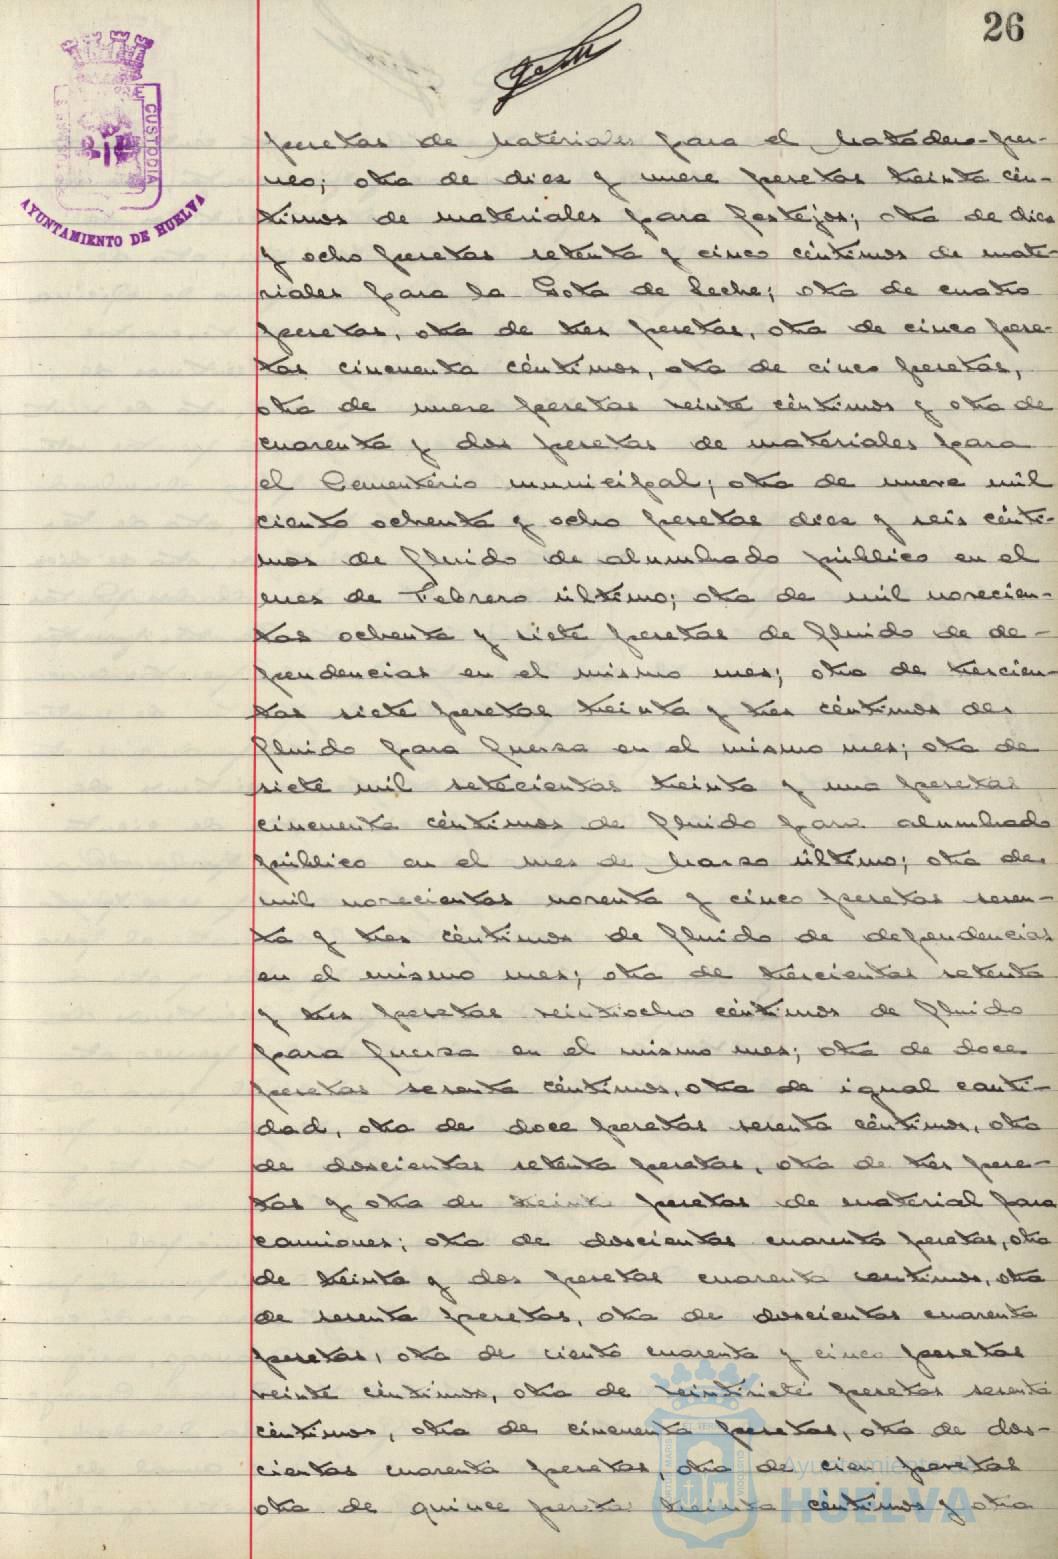 26
CUSTODIA
AYUNTAMIENTO DE HUELVA
pesetas de materiales para el Matadero-por-
neo; otra de diez y nueve pesetas treinta cén-
timos de materiales para festejos; otra de diez
y ocho pesetas setenta y cinco céntimos de mate-
riales para la Gota de Leche; otra de cuatro
pesetas, otra de tres pesetas, otra de cinco pese-
tas cincuenta céntimos, otra de cinco pesetas,
otra de nueve pesetas veinte céntimos y otra de
cuarenta y dos pesetas de materiales para
el Cementerio municipal; otra de nueve mil
ciento ochenta y ocho pesetas diez y seis cénti-
mos de fluido de alumbrado público en el
mes de Febrero último; otra de mil novecien-
tas ochenta y siete pesetas de fluido de de-
pendencias en el mismo mes; otra de trescien-
tas siete pesetas treinta y tres céntimos de
fluido para fuerza en el mismo mes; otra de
siete mil setecientas treinta y una pesetas
cincuenta céntimos de fluido para alumbrado
público en el mes de Marzo último; otra de
mil novecientas noventa y cinco pesetas sesen-
ta y tres céntimos de fluido de dependencias
en el mismo mes; otra de trescientas setenta
y tres pesetas veintiocho céntimos de fluido
para fuerza en el mismo mes; otra de doce
pesetas sesenta céntimos, otra de igual canti-
dad, otra de doce pesetas sesenta céntimos, otra
de doscientas setenta pesetas, otra de tres pese-
tas y otra de treinta pesetas de material para
camiones; otra de doscientas cuarenta pesetas, otra
de treinta y dos pesetas cuarenta centimos, otra
de sesenta pesetas, otra de doscientas cuarenta
pesetas, otra de ciento cuarenta y cinco pesetas
veinte céntimos, otra de veintisiete pesetas sesenta
céntimos, otra de cincuenta pesetas, otra de dos-
cientas cuarenta pesetas, otra de cien pesetas
otra de quince pesetas treinta céntimos y otra
Ayuntamiento
HUELVA